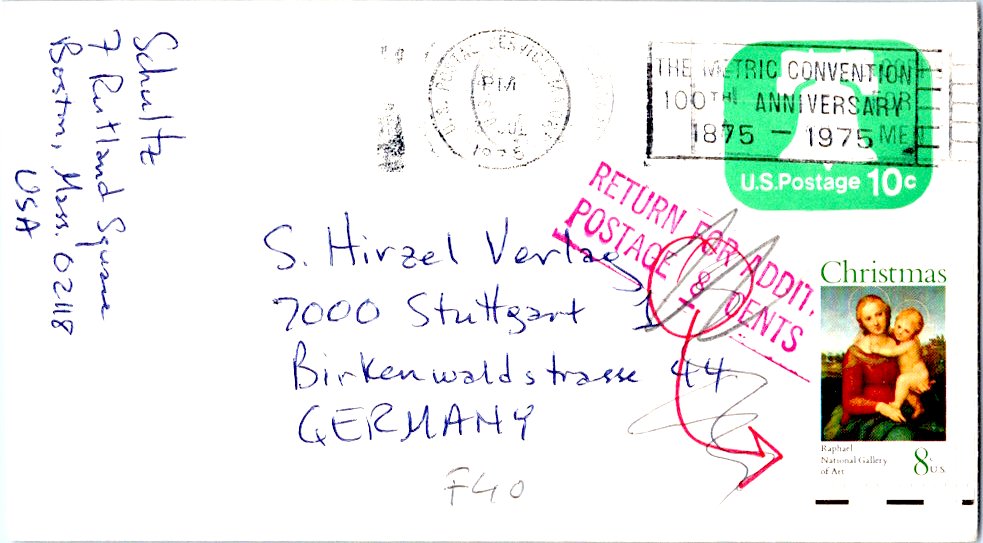 Schultz
7 Rutland Square
Boston, Mass. 02118
USA
U.S. POSTAL SERVICE
PM
1975
THE METRIC CONVENTION
100TH ANNIVERSARY
1875 - 1975
U.S. Postage 10c
RETURN FOR ADDIT.
POSTAGE 8 CENTS
S. Hirzel Verlag
7000 Stuttgart 1
Birkenwaldstrasse 44
GERMANY
F40
Christmas
Raphael
National Gallery
of Art
8c U.S.